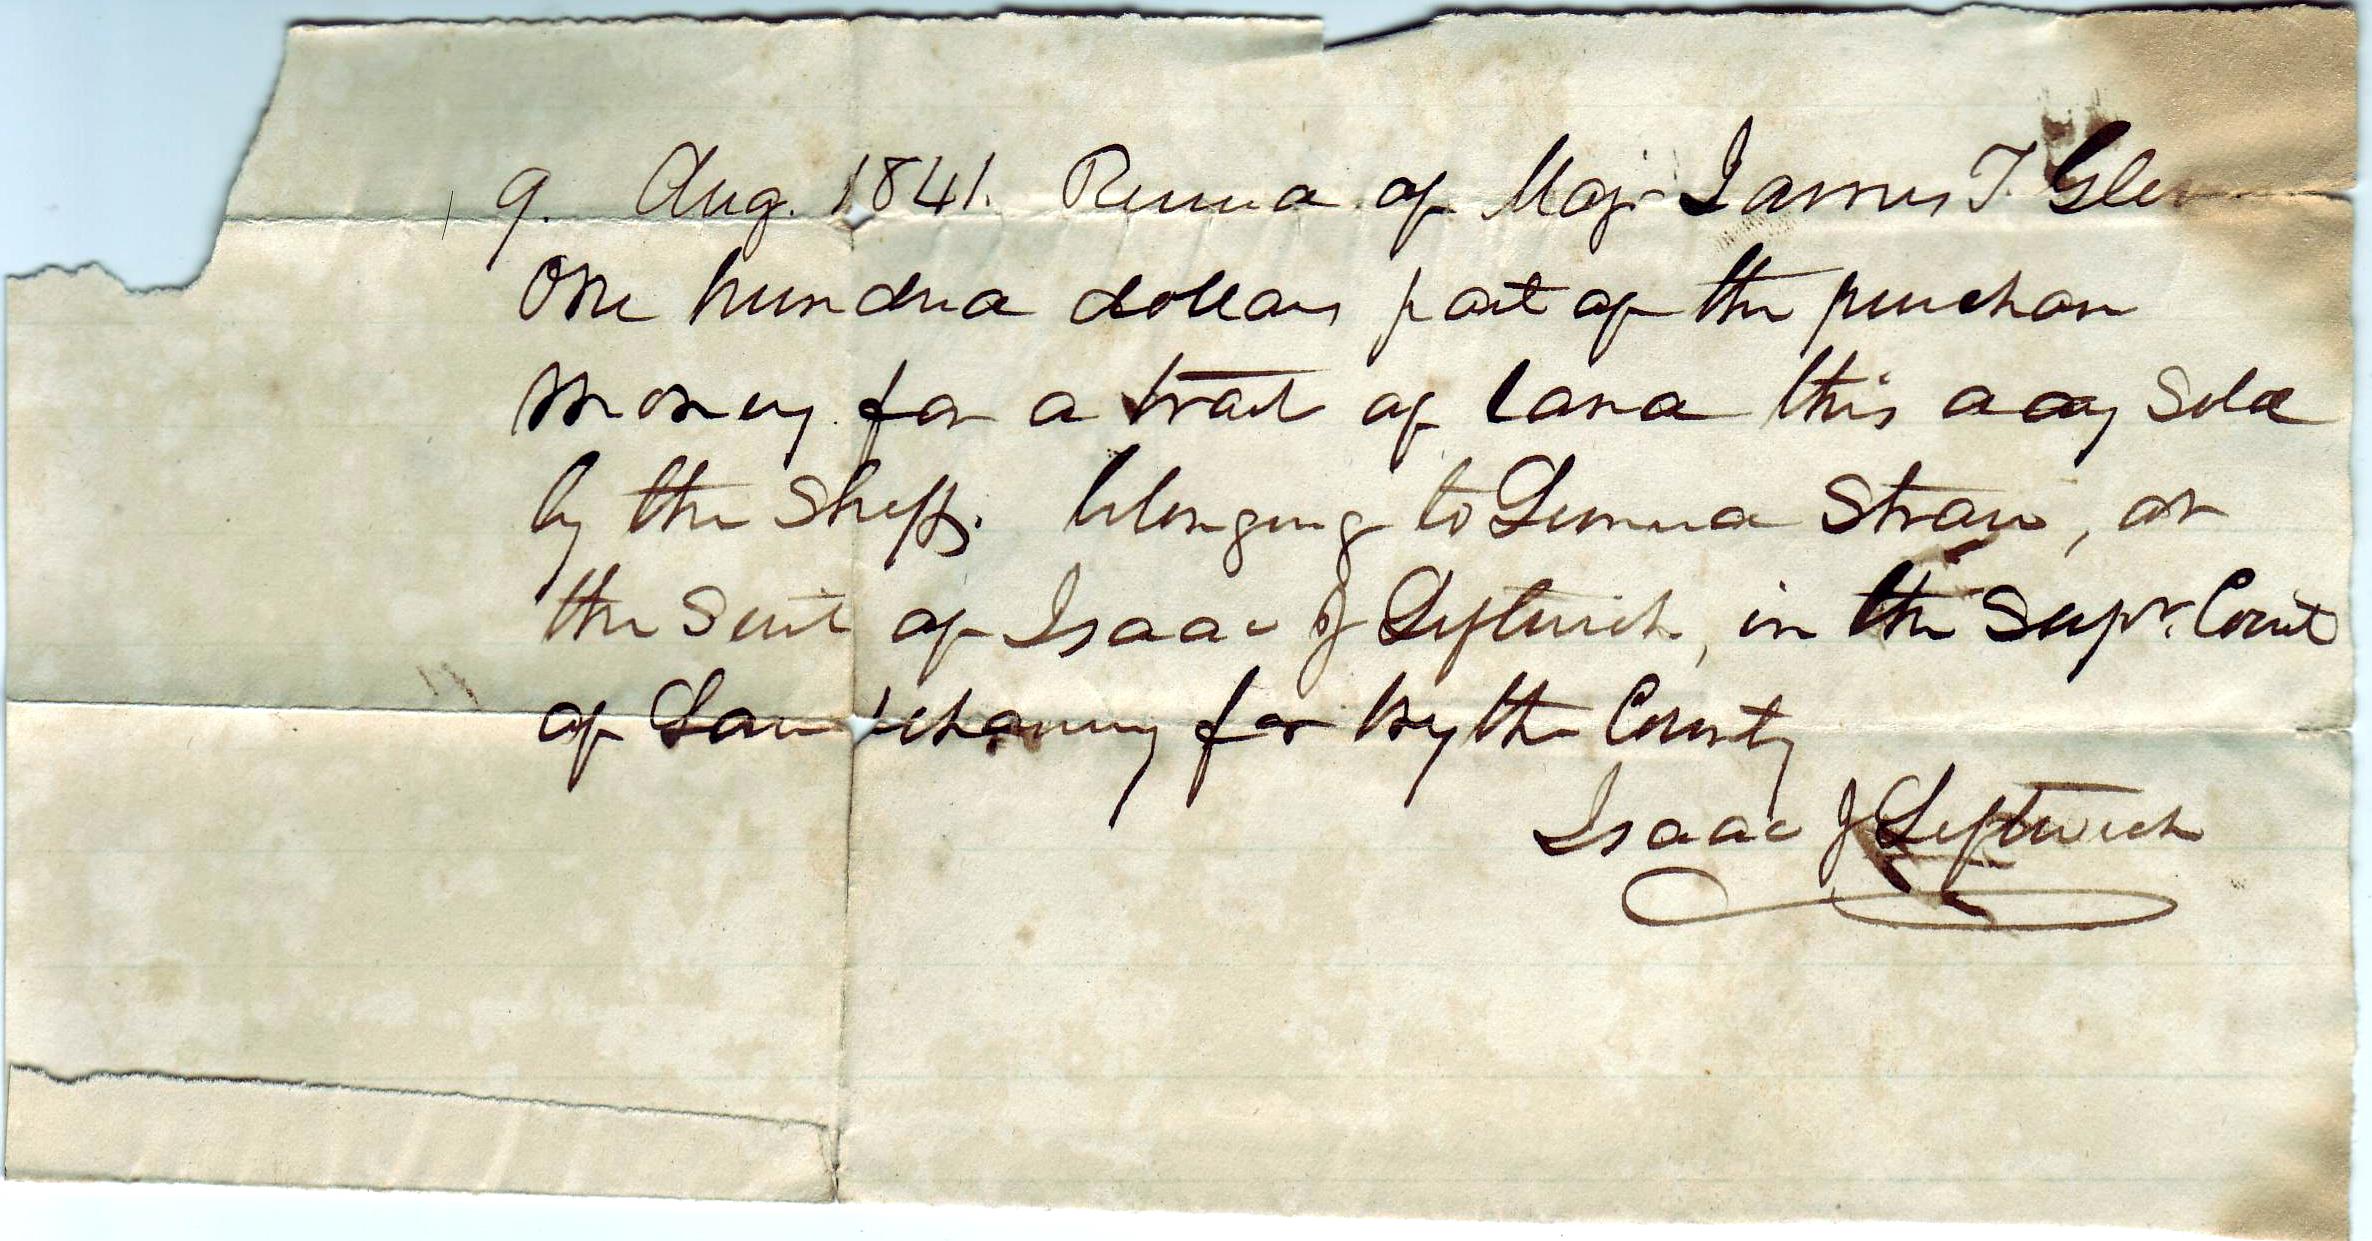 9. Aug. 1841. Received of Maj. James T. Glen
One hundred dollars part of the purchase
money for a tract of land this day sold
by the Sheff. belonging to Straw, at
the suit of Isaac J Leftwich, in the Supr. Court
of Law & chancery for Wythe County
Isaac J Leftwich